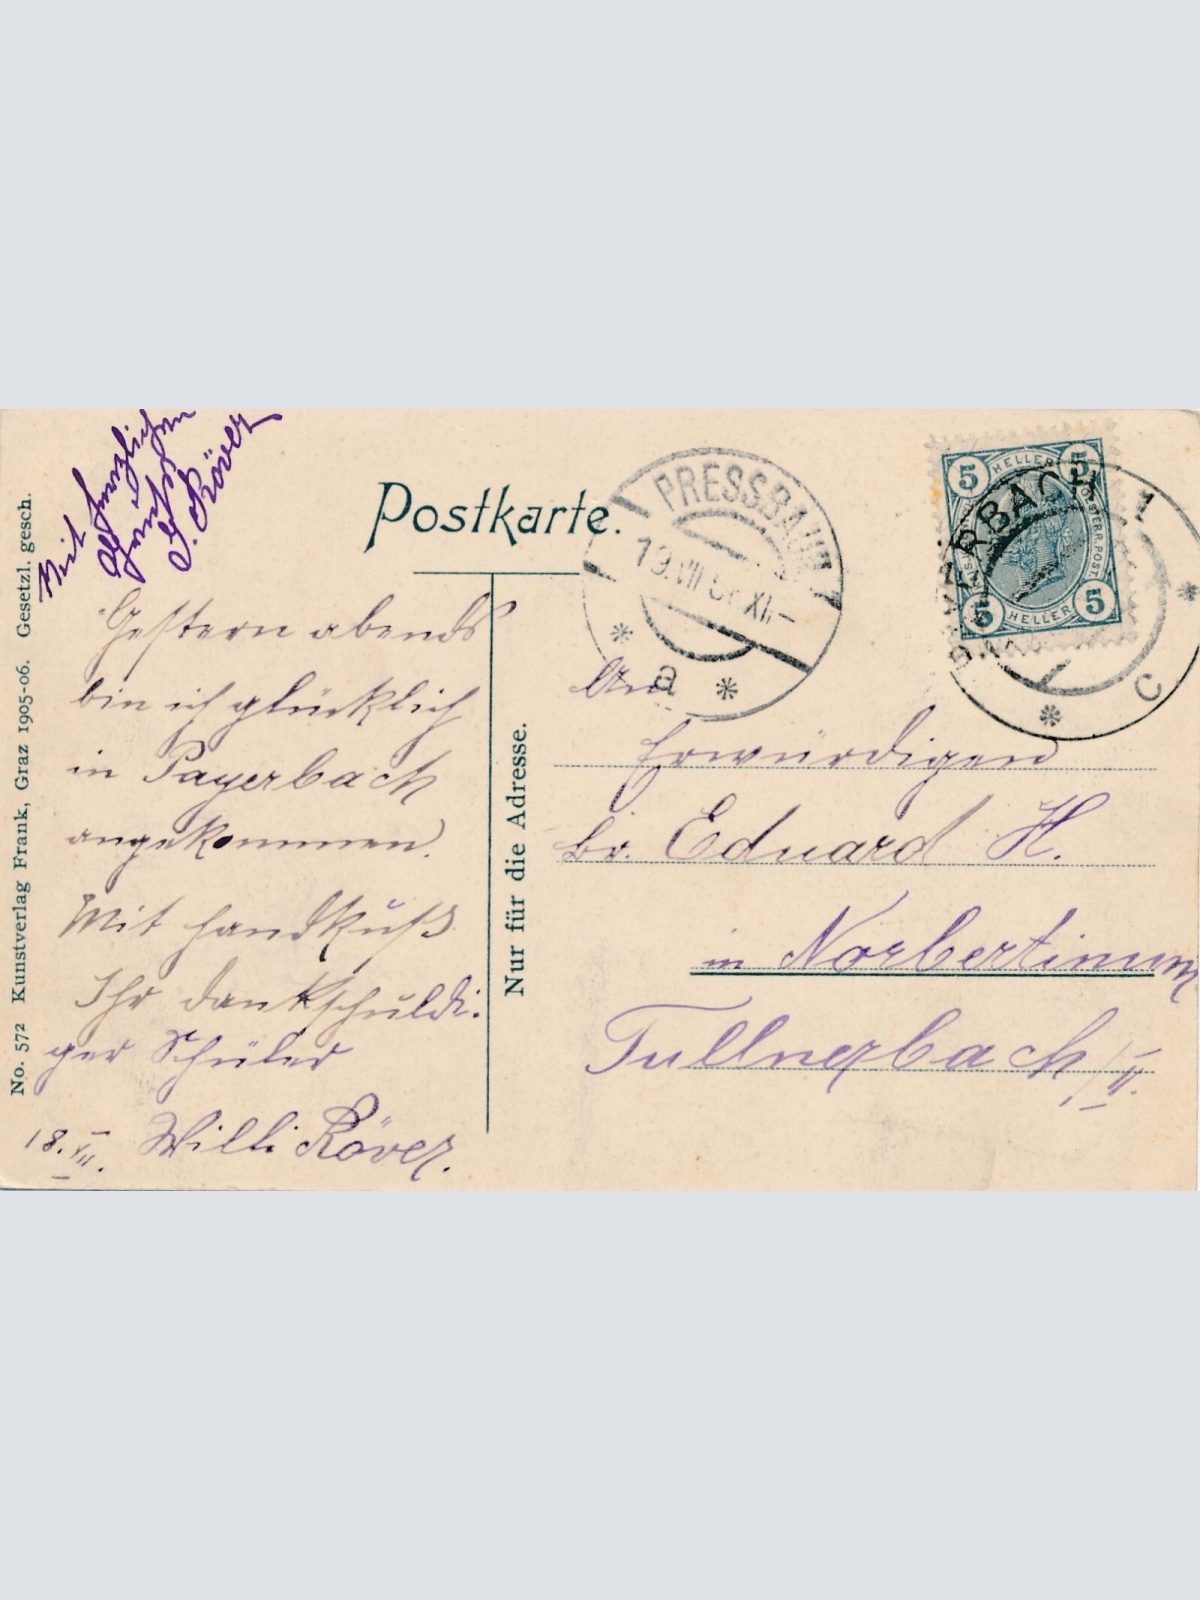 Mit
herzlichen
Röver
Postkarte.
Gestern abends
bin ich glücklich
in Payerbach
angekommen.
Mit Handkuß
Ihr dankschuldi:
ger Schüler
18. VII. Willi Röver.
No. 572 Kunstverlag Frank, Graz 1905-06. Gesetzl. gesch.
Nur für die Adresse.
PRESSBAUM
19.VII XII-
a
5 HELLER 5
5 HELLER 5
PAYERBACH 1
c
An
Ehrwürdigen
Br. Eduard H.
in Norbertinum
Tullnerbach